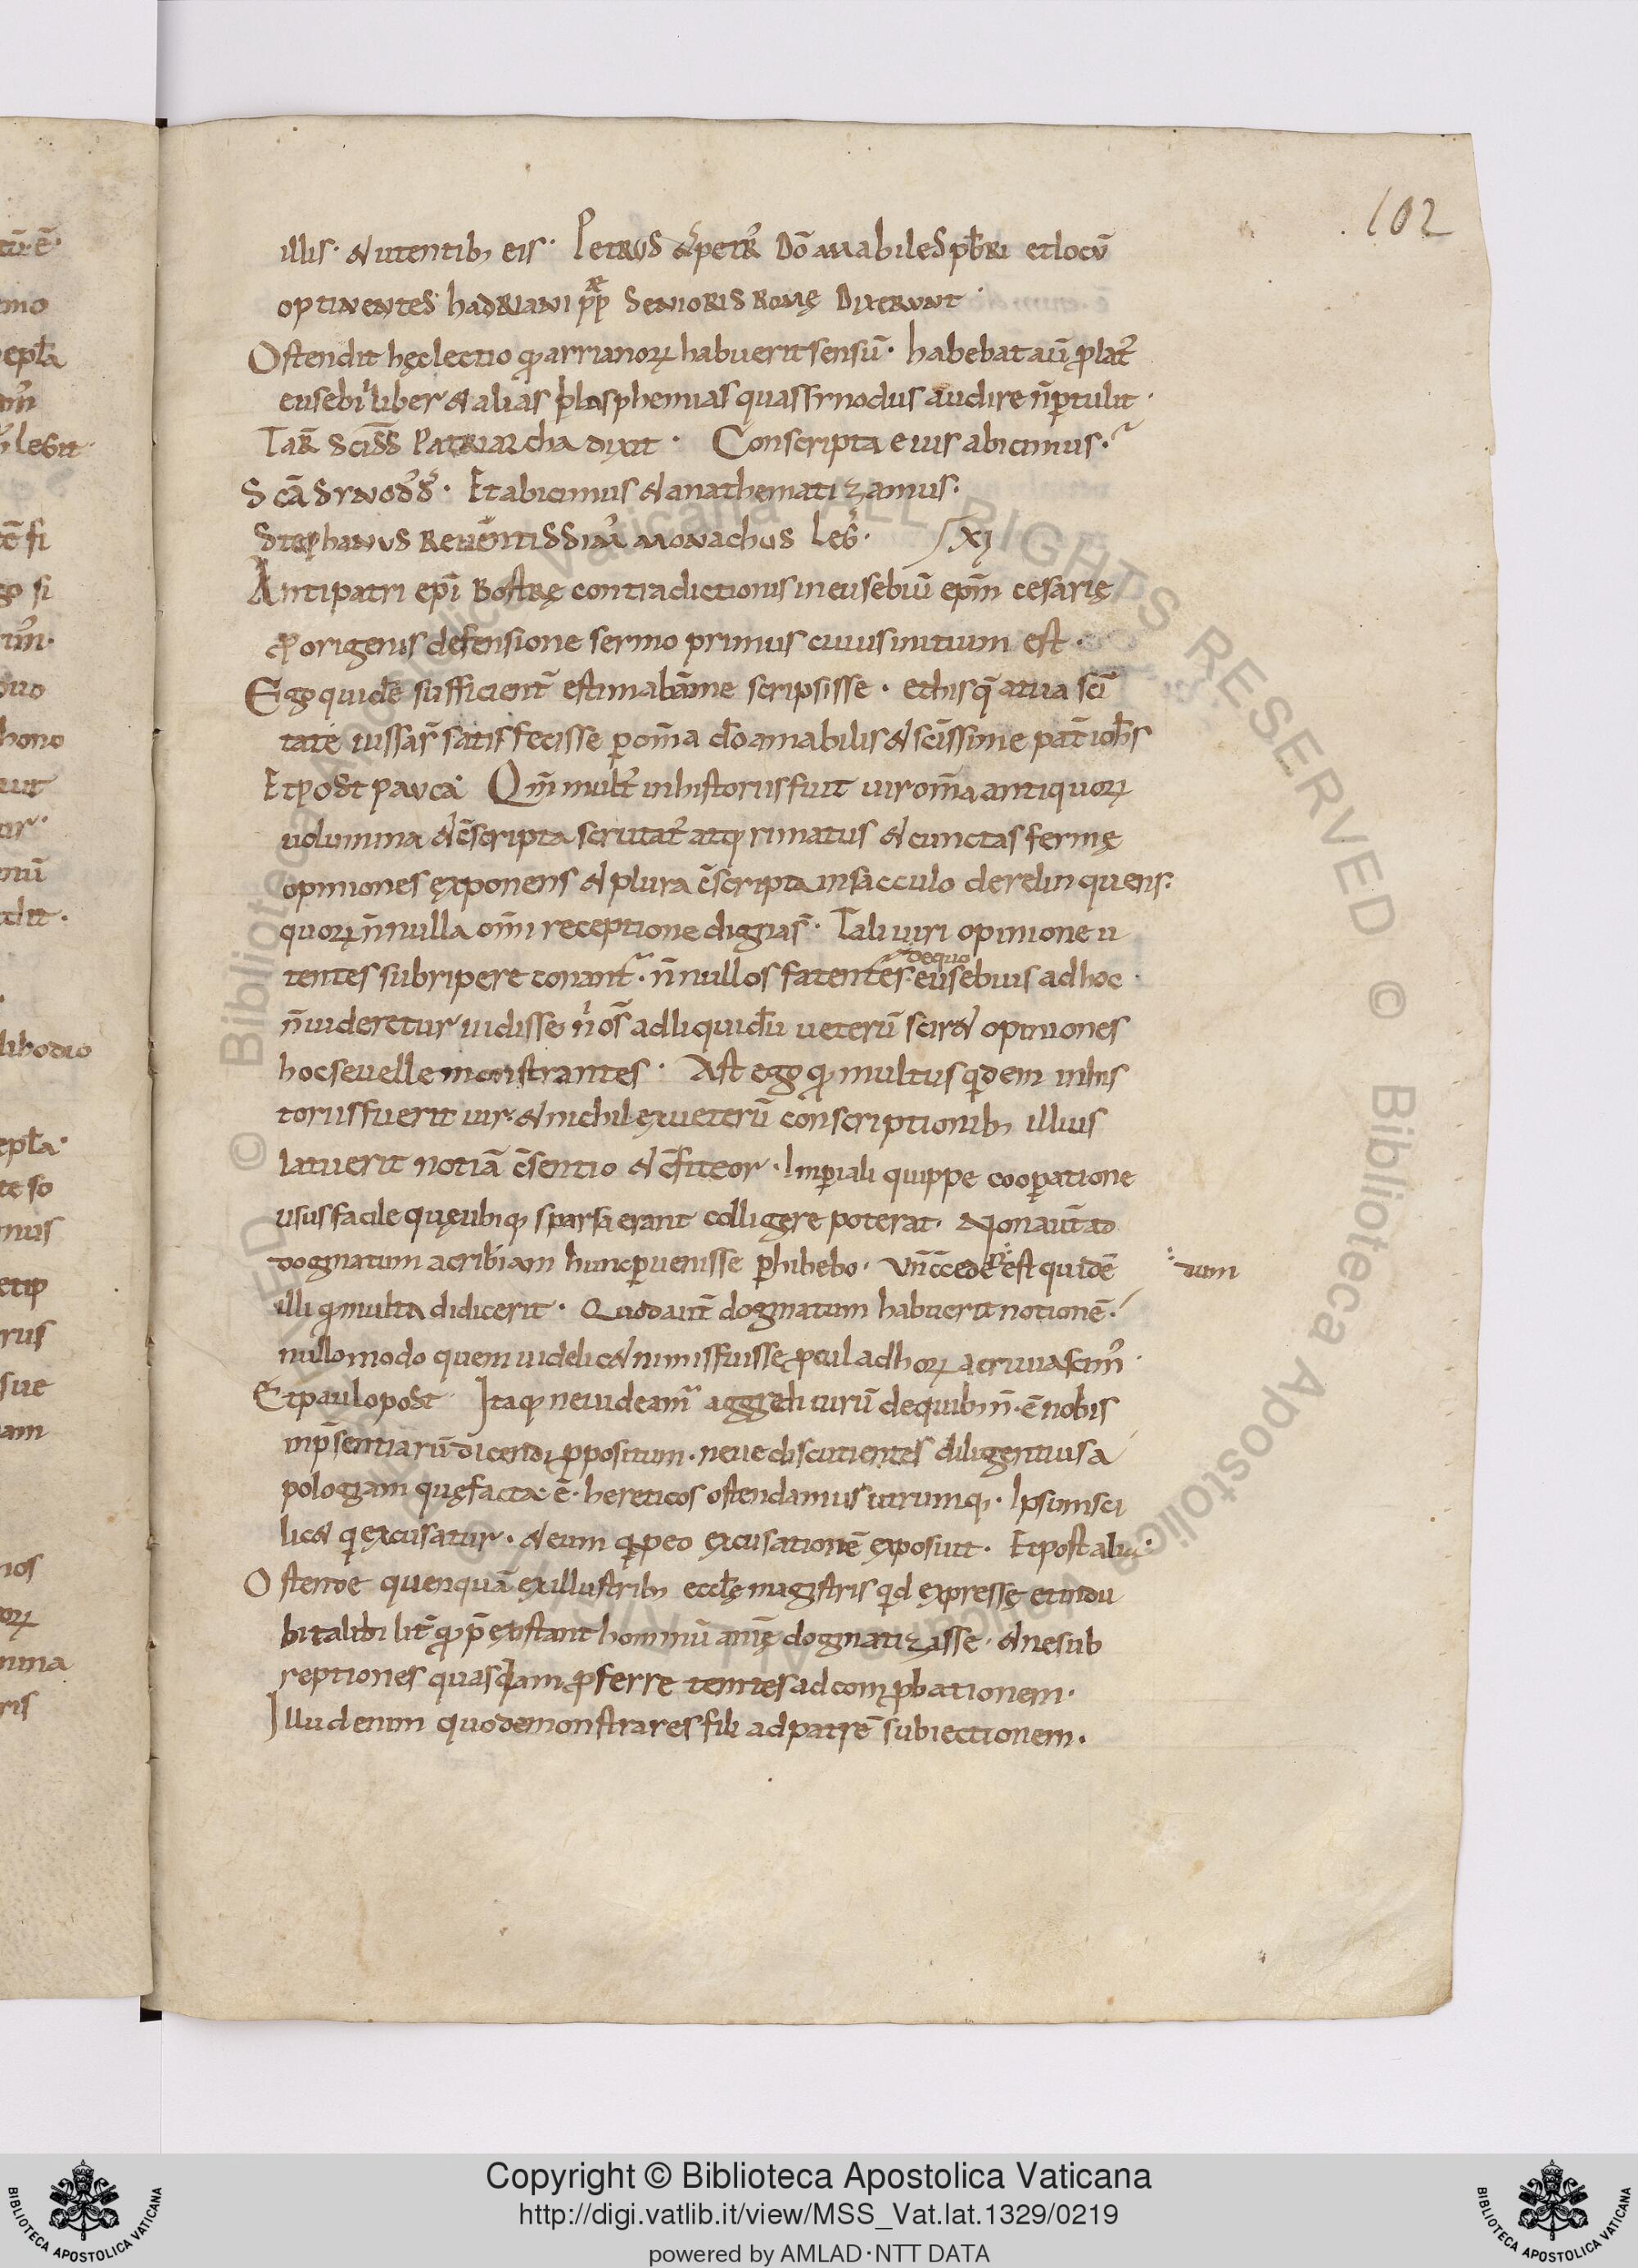 102
illis · & utentib; eis · Petrus & petr᾽ dō amabiles pƀri et locū
optinentes hadriani pp̄ senioris romę dixerunt ·
Ostendit hęc lectio qđ arrianoꝝ habuerit sensū · habebat aū plat᾽
eusebi᾽ liber & alias blasphemias quas synodus audire n̄ ꝑtulit ·
Tar̄ sciss̄ patriarcha dixit · Conscripta eius abicimus ·
Scā synod᾽ · Et abicimus & anathematizamus ·
Stephanus reuerentissim᾽ monachus leḡ · XI
Antipatri epī bostrę contradictionis in eusebiū epm̄ cesarię
ꝓ origenis defensione sermo primus cuius initium est ·
Ego quidē sufficient̄ estimabā me scripsisse · et his q̄ a tua sc̄i
tate iussa s̄ satisfecisse ꝑ om̄a dō amabilis & sc̄issime pat̄ ioħs
Et post pauca Qm̄ mult᾽ in historiis fuit uir om̄a antiquoꝝ
uolumina & c̄scripta scrutat᾽ atq; rimatus & cunctas fermę
opiniones exponens & plura c̄scripta in sacculo derelinquens ·
quoꝝ n̄nulla om̄i receptione digna s̄ · Tali uiri opinione u
tentes subripere conant᾽ · n̄nullos fatentes · eusebius ad hoc ·
de quo
n̄ uideretur uidisse n̄ os̄ ad liquidū ueterū scir& opiniones
hoc se uelle monstrantes · Ast ego qđ multus qdem in his
toriis fuerit uir · & nichil ex ueterū conscriptionib; illius
latuerit notiā c̄sentio & c̄fiteor · Imꝑiali quippe cooꝑatione
usus facile quę ubiq; sparsa erant colligere poterat · Non aut̄ ad
dogmatum acribiam hunc ꝑuenisse ꝑhibebo · Vn̄ c̄cedeR̄ est quidē
dum
illi qđ multa didicerit · Quod aut̄ dogmatum habuerit notionē ·
nullo modo quem uidelic& nimis fuisse ꝓcul ab hoꝝ acriuia scim᾽ ·
Et paulo post Itaq; ne uideam᾽ aggredi iurū de quib; n̄ · ē nobis
in p̄sentiarū dicendi ꝓpositum · neue discutientes diligentius a
pologiam quę facta · ē · hereticos ostendamus utrumq; · Ipsum sci
lic& q excusatur · & eum q ꝓ eo excusationē exposuit · Et post alia ·
Ostende quenquā ex illustrib; eccłę magistris qd expressę et indu
bitalibilit̄ qđ p̄ extstant hominū anim̄ę dogmatizasse · & ne sub
reptiones quasdam ꝓferre temtes ad comꝓbationem ·
Illud enim quo demonstrares fili ad patrē subiectionem ·
Copyright © Biblioteca Apostolica Vaticana
http://digi.vatlib.it/view/MSS_Vat.lat.1329/0219
powered by AMLAD·NTT DATA
BIBLIOTECA APOSTOLICA VATICANA
BIBLIOTECA APOSTOLICA VATICANA